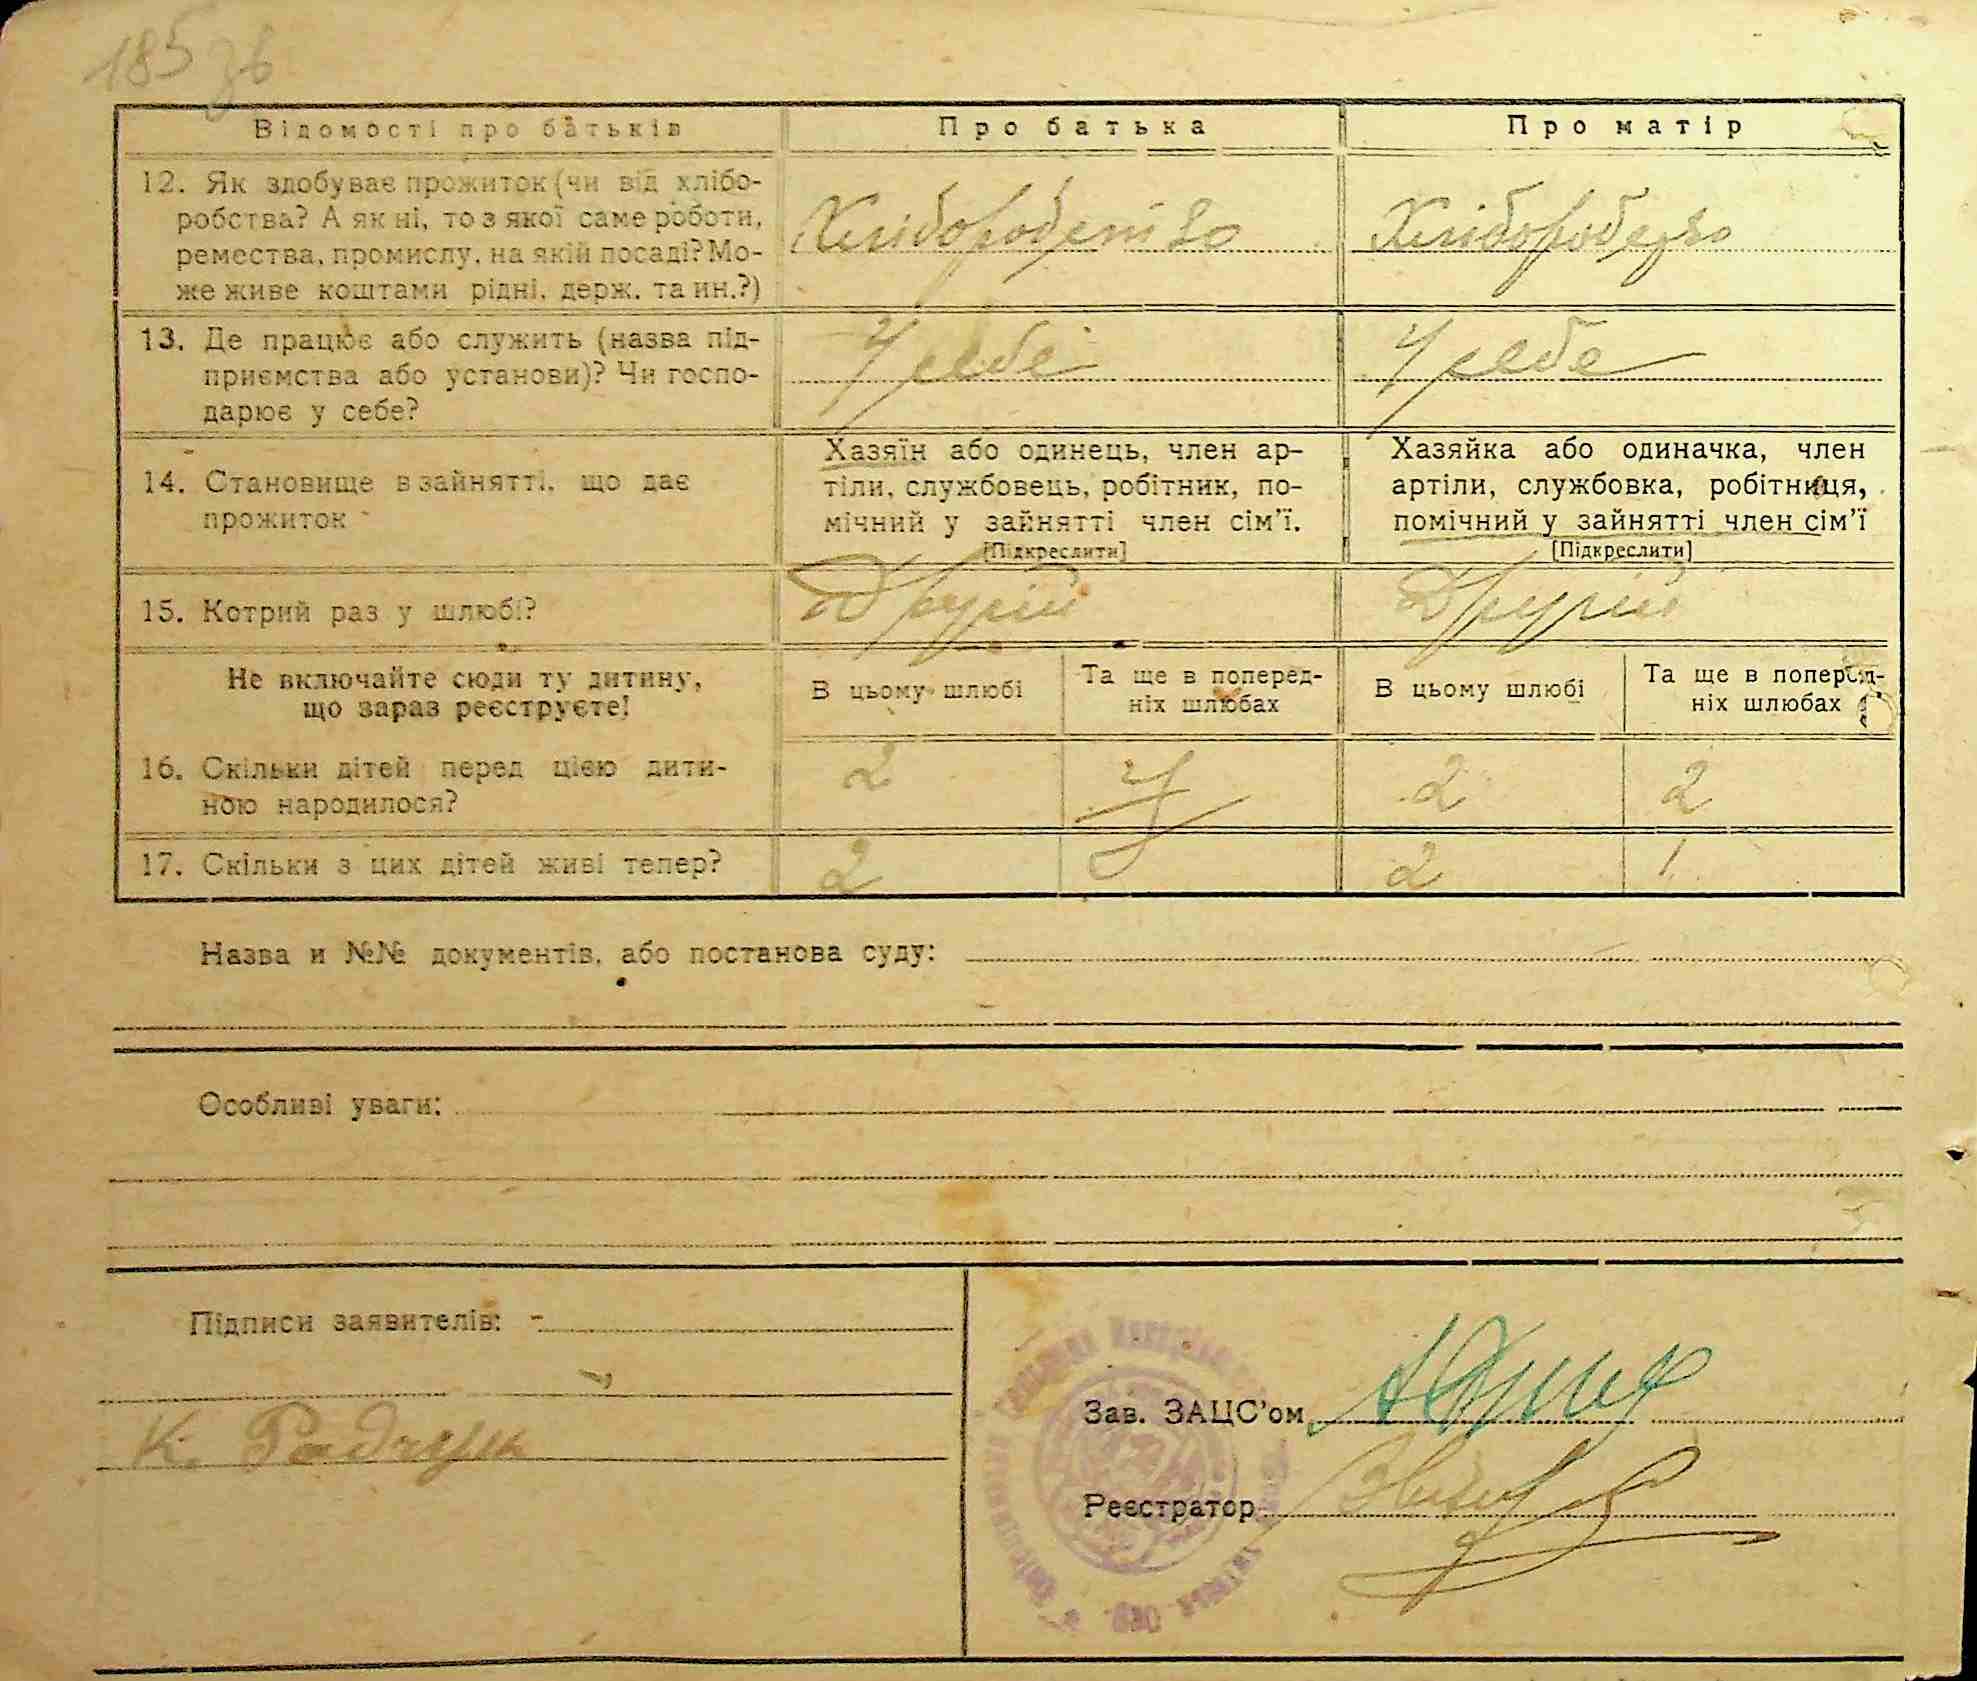 185 зв
Відомості про батьків
Про батька
Про матір
12. Як здобуває прожиток (чи від хлібо-
робства? А як ні, то з якої саме роботи,
ремества, промислу, на якій посаді? Мо-
же живе коштами рідні, держ. та ин.?)
Хліборобство
Хліборобство
13. Де працює або служить (назва під-
приємства або установи)? Чи госпо-
дарює у себе?
У себе
У себе
14. Становище в зайнятті, що дає
прожиток
Хазяїн або одинець, член ар-
тіли, службовець, робітник, по-
мічний у зайнятті член сім’ї.
[Підкреслити]
Хазяйка або одиначка, член
артіли, службовка, робітниця,
помічний у зайнятті член сім’ї
[Підкреслити]
15. Котрий раз у шлюбі?
Другий
Другий
Не включайте сюди ту дитину,
що зараз реєструєте!
В цьому шлюбі
Та ще в поперед-
ніх шлюбах
В цьому шлюбі
Та ще в поперед-
ніх шлюбах
16. Скільки дітей перед цією дити-
ною народилося?
2
2
2
17. Скільки з цих дітей живі тепер?
2
2
1
Назва и №№ документів, або постанова суду:
Особливі уваги:
Підписи заявителів:
К. Радчук
Зав. ЗАЦС’ом
Реєстратор